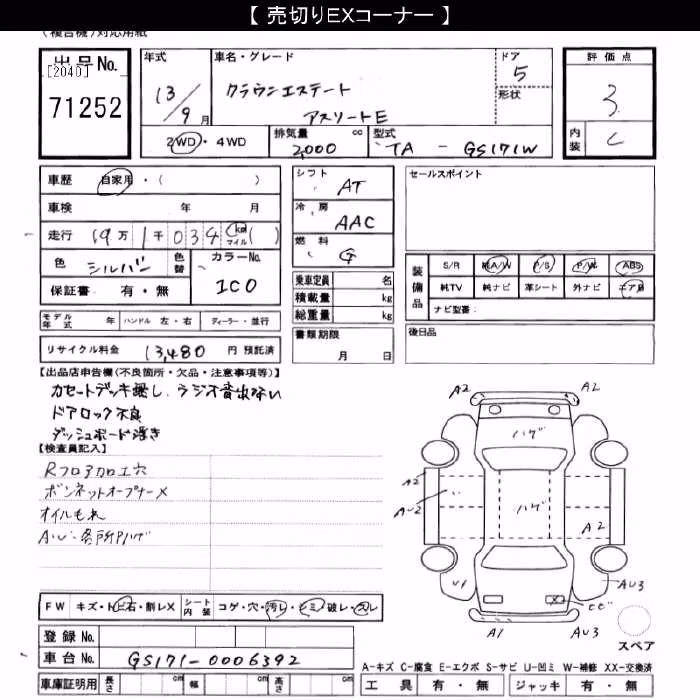 【 売切りEXコーナー 】
(複合機)対応用紙
出品No.
[2040]
71252
年式
13/9月
車名・グレード
クラウンエステート
アスリートE
ドア
5
形状
評価点
3
内装
C
2WD・4WD
排気量 cc
2,000
型式
TA - GS171W
車歴 自家用・( )
車検 年 月
走行 19万1千034 km マイル ( )
色 シルバー 色替
カラーNo.
1C0
保証書 有・無
シフト
AT
冷房
AAC
燃料
G
乗車定員 名
積載量 kg
総重量 kg
セールスポイント
装備品
S/R 純A/W P/S P/W ABS
純TV 純ナビ 革シート 外ナビ エアB
ナビ型番:
モデル年式 年 ハンドル 左・右 ディーラー・並行
リサイクル料金 13,480 円 預託済
書類期限
月 日
後日品
【出品店申告欄(不良箇所・欠品・注意事項等)】
カセートデッキ無し、ラジオ音出ない
ドアロック不良
ダッシュボード浮き
【検査員記入】
Rフロア加工穴
ボンネットオープナーX
オイルもれ
A・U・各所P.ハゲ
A2
A2
ハゲ
A2
AU2
ハゲ
A2
AU3
A1
AU3
スペア
FW キズ・トビ石・割レX シート内装 コゲ・穴・汚レ・シミ・破レ・スレ
登録No.
車台No. GS171-0006392
車庫証明用 長さ cm 幅 cm 高さ cm
A-キズ C-腐食 E-エクボ S-サビ U-凹ミ W-補修 XX-交換済
工具 有・無 ジャッキ 有・無